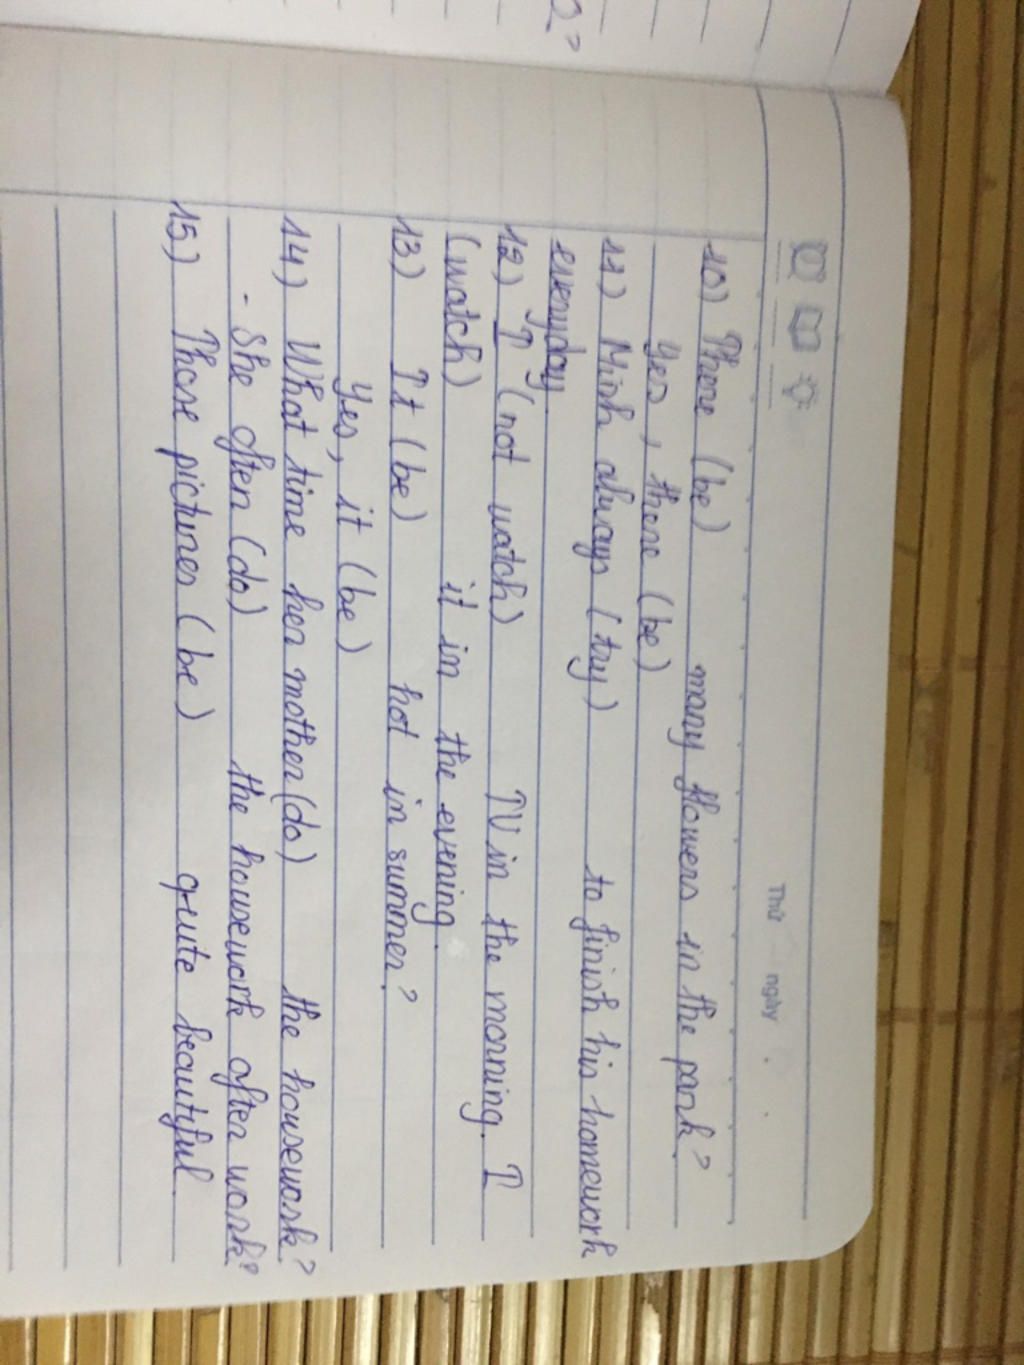 Thứ ngày
10) There (be) many flowers in the park?
Yes, there (be)
11) Minh always (try) to finish his homework
everyday
12) I (not watch) TV in the morning. I
(watch) it in the evening.
13) It (be) hot in summer?
Yes, it (be)
14) What time her mother (do) the housework?
- She often (do) the housework after work?
15) Those pictures (be) quite beautiful.